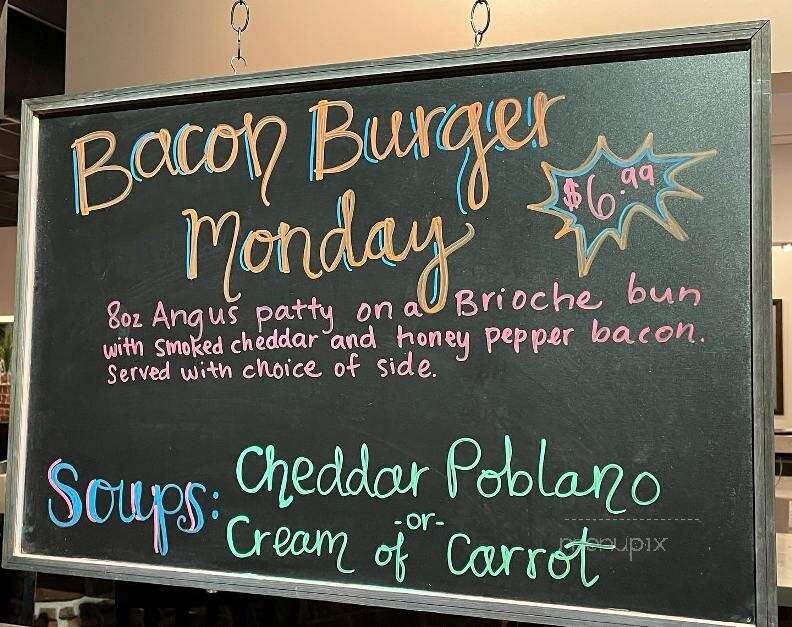 Bacon Burger
Monday
$6.99
8oz Angus patty on a Brioche bun
with smoked cheddar and honey pepper bacon.
Served with choice of side.
Soups: Cheddar Poblano
-or-
Cream of Carrot
menupix